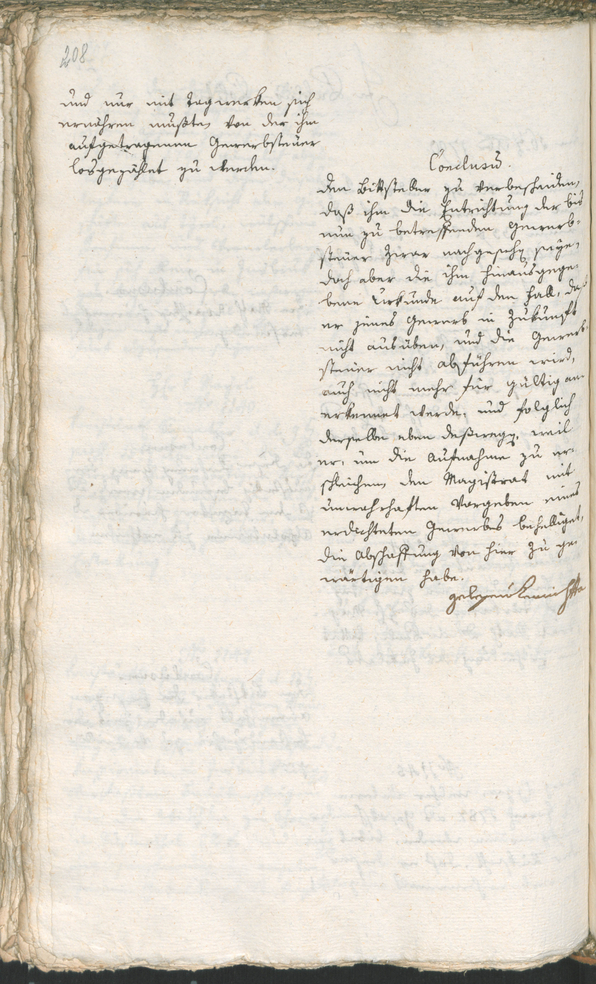 208
und nur mit Tagwerken sich
ernähren müßten von der ihm
aufgetragenen Gewerbsteuer
losgezählet zu werden.
Conclusum.
Dem Bittsteller zu verbescheiden,
daß ihm die Entrichtung der bis
nun zu betreffenden Gewerb-
steuer zwar nachgesehen seye,
doch aber die ihm hinausgege-
bene Urkunde auf den Fall, daß
er jenes Gewerb in Zukunft
nicht ausüben, und die Gewerb-
steuer nicht abführen wird,
auch nicht mehr für gültig an-
erkennet werde, und folglich
derselbe eben deßwegen, weil
er, um die Aufnahme zu er-
schleichen, den Magistrat mit
unwahrhaften Vorgeben eines
erdichteten Gewerbs behelliget,
die Abschaffung von hier zu ge-
wärtigen habe.